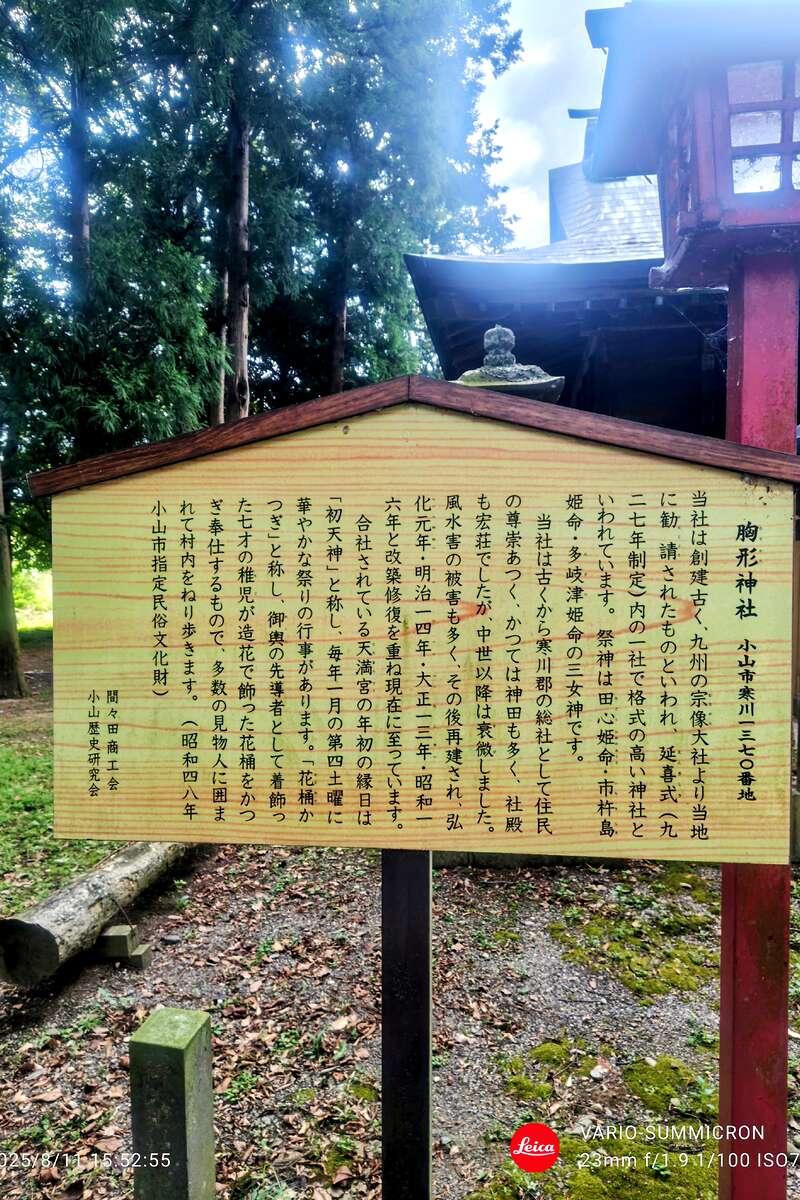 胸形神社　小山市寒川一三七〇番地
当社は創建古く、九州の宗像大社より当地
に勧　請されたものといわれ、延喜式（九
二七年制定）内の一社で格式の高い神社と
いわれています。祭神は田心姫命・市杵島
姫命・多岐津姫命の三女神です。
当社は古くから寒川郡の総社として住民
の尊崇あつく、かつては神田も多く、社殿
も宏荘でしたが、中世以降は衰微しました。
風水害の被害も多く、その後再建され、弘
化元年・明治一四年・大正一三年・昭和一
六年と改築修復を重ね現在に至っています。
合社されている天満宮の年初の縁日は
「初天神」と称し、毎年一月の第四土曜に
華やかな祭りの行事があります。「花桶か
つぎ」と称し、御輿の先導者として着飾っ
た七才の稚児が造花で飾った花桶をかつ
ぎ奉仕するもので、多数の見物人に囲ま
れて村内をねり歩きます。（昭和四八年
小山市指定民俗文化財）
間々田商工会
小山歴史研究会
Leica
VARIO-SUMMICRON
23mm f/1.9 1/100 ISO7
025/8/11 15:52:55